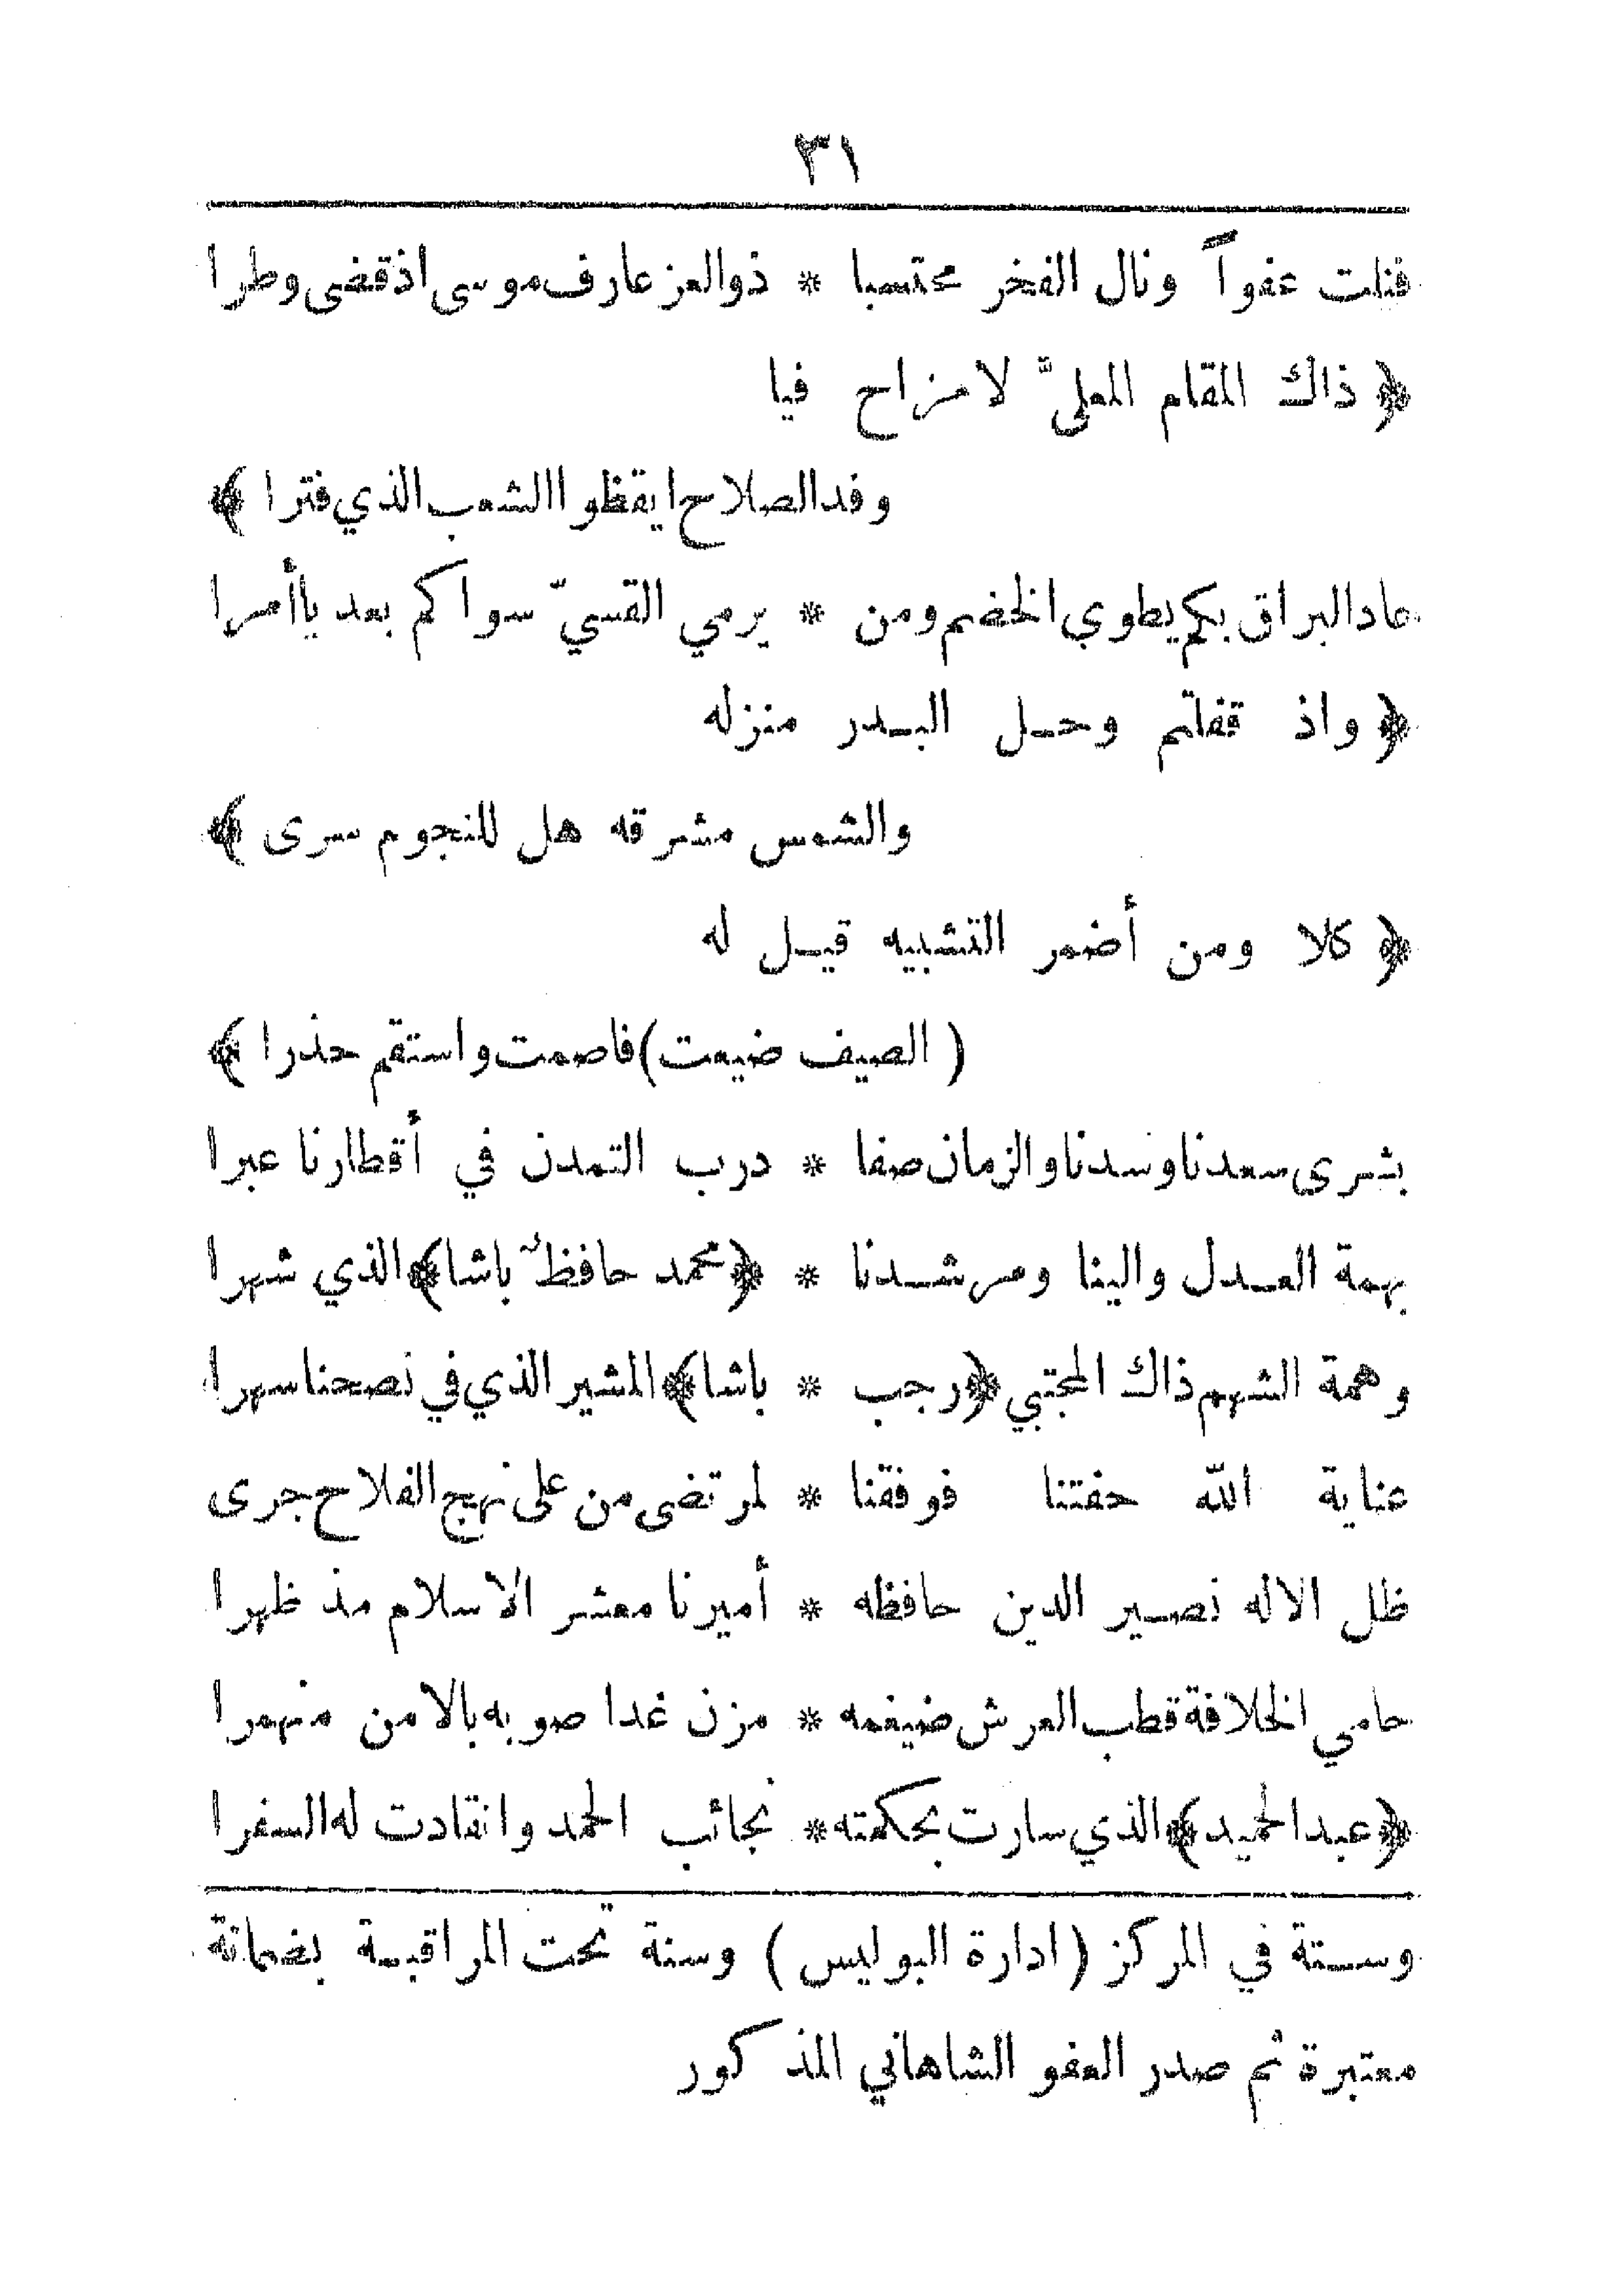 ٣١
فنلت عفواً ونال الفخر محتسبا * ذو العز عارف موسى اذ قضى وطرا
﴿ ذاك المقام المعلىّ لا مزاح فيا
وفد الصلاح ايقظوا الشعب الذي فترا ﴾
حاد البراق بكم يطوي الخضم ومن * يرمي القسيّ سواكم بعد يا أمرا
﴿ واذ قفلتم وحل البدر منزله
والشمس مشرقه هل للنجوم سرى ﴾
﴿ كلا ومن أضمر التشبيه قيل له
( الصيف ضيعت ) فاصمت واستقم حذرا ﴾
بشرى سعدنا وسدنا والزمان صفا * درب التمدن في أقطارنا عبرا
بهمة العدل والينا ومرشدنا * ﴿ محمد حافظ باشا ﴾ الذي شهرا
وهمة الشهم ذاك المجتبي ﴿ رجب * باشا ﴾ المشير الذي في نصحنا سهرا
عناية الله حفتنا فوفقنا * لمرتضى من على نهج الفلاح جرى
ظل الاله نصير الدين حافظه * أميرنا معشر الاسلام مذ ظهرا
حامي الخلافة قطب العرش ضيغمه * مزن غدا صوبه بالامن منهمرا
﴿ عبد الحميد ﴾ الذي سارت بحكمته * نجائب الحمد وانقادت له السفرا
وستة في المركز ( ادارة البوليس ) وسنة تحت المراقبة بضمانة
معتبرة ثم صدر العفو الشاهاني المذكور